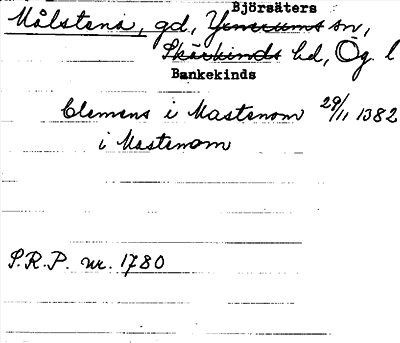 Björsäters
Målstena, gd, Yxnerums sn,
Skärkinds hd, Ög. l
Bankekinds
Clemens i Mastenom 29/11 1382
i Mastenom
S.R.P. nr. 1780